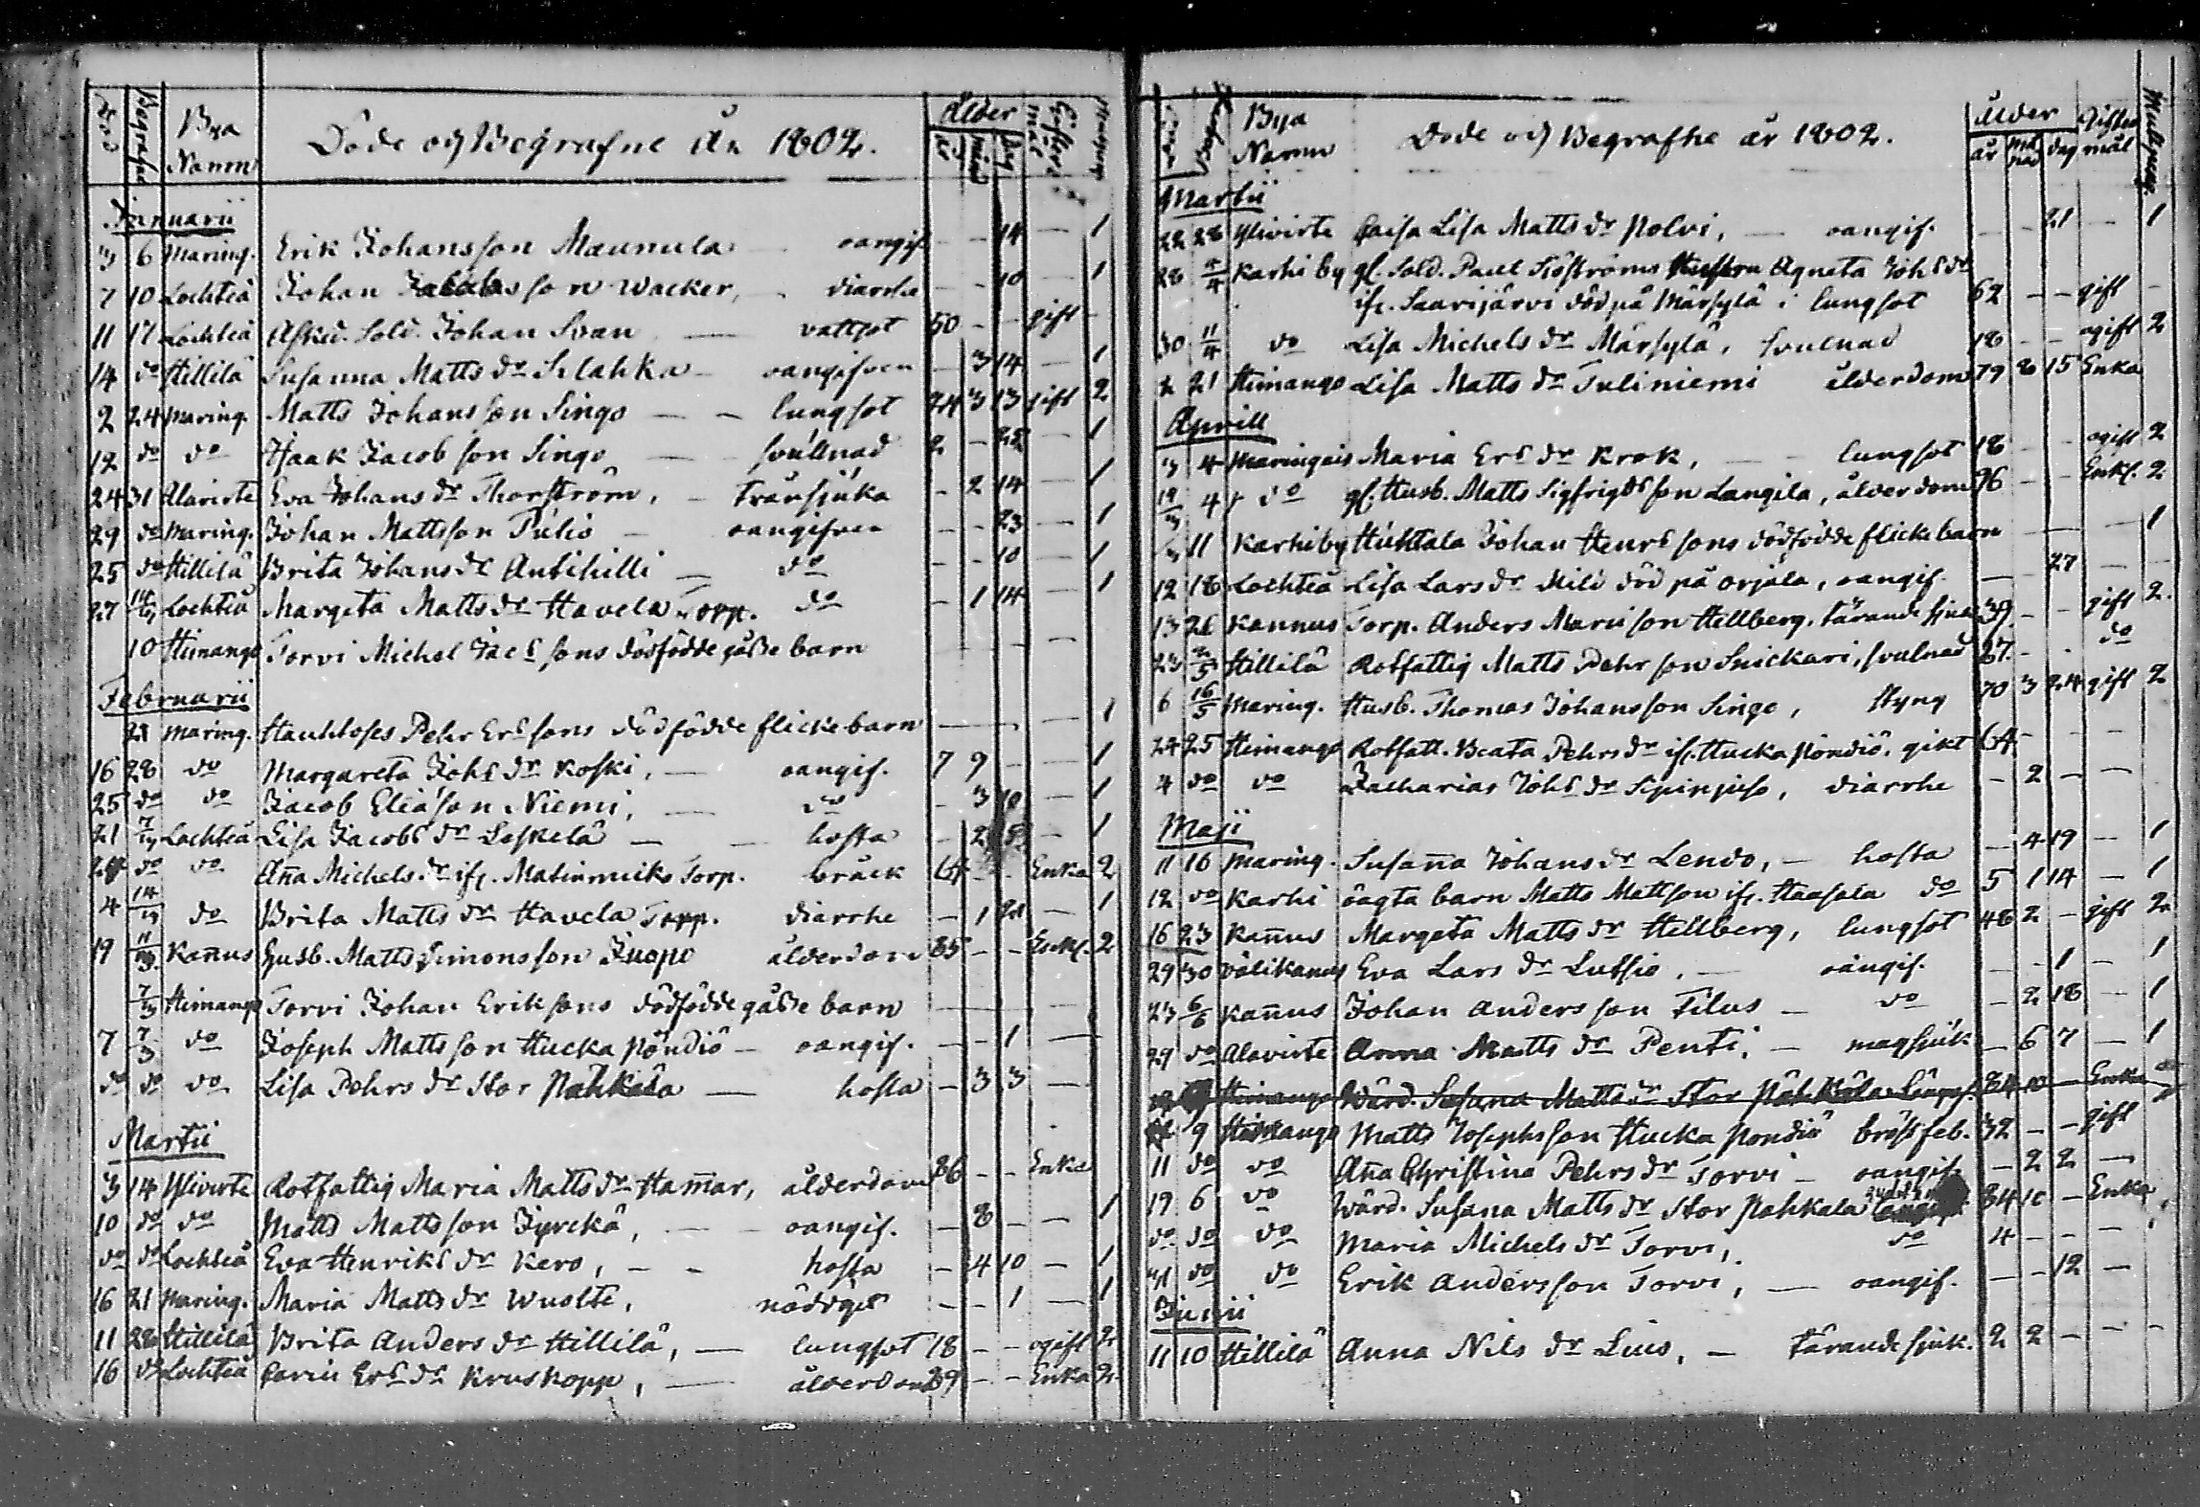 Död Begrafne Bya Namn Döde och Begrafne År 1802. Ålder år dag Gifterm
Januarii
3 6 Maring. Erik Johansson Maunula oangif. - - 14 - 1
7 10 Lochteå Johan Jacobsson Wacker, - diarrhe - - 10 - 1
11 17 Lochteå Afsked. Sold. Johan Svan - vattsot 50 - - gift -
14 do Hillilä Susanna Matts dr - oangifven - 3 14 - 1
2 24 Maring. Matts Johansson Singo - - lungsot 3 13 gift 2
12 do do Isaak Jacobsson Singo - svullnad 2 - - 1
24 31 Alavirte Eva Johans dr Thorström, - Trånsjuka - 2 14 - 1
29 do Maring. Johan Mattsson Pulio - oangifven - - 23 - 1
25 do Hillilä Brita Johans dr Antihilli - do - - 10 - 1
27 14/3 Lochteå Margeta Matts dr Havela Torp. do - 1 14 - 1
10 Himango Torvi Michel Jacs sons dödfödde gåsse barn - - -
Februarii
21 Maring. Hauhloses Pehr Ers sons dödfödde flicke barn - - - 1
16 28 do Margareta Johs dr Koski, - oangif. 7 9 - - 1
25 do do Jacob Eliason Niemi, - do - 3 10 - 1
21 7/3 Lochteå Lisa Jacobs dr Leskelä - - hosta - 2 - 1
do do Aña Michels dr ifr. Matinmicks Torp. bråck 64 - - Enka 2
4 14/3 do Brita Matts dr Havela Torp. diarrhe - 1 21 - 1
19 11/3 Kañus Husb. Matts Simonsson Juopo ålderdom 85 - - Enkl. 2
7/3 Himango Torvi Johan Eriksons dödfödde gåsse barn - - -
7 7/3 do Joseph Mattsson Huckapöndiö - oangif. - - 1 -
do do do Lisa Pehrs dr Stor Pahkala - hosta - 3 3 -
Martii
3 14 Ylivirte Rotfattig Maria Matts dr Hamar, ålderdom 86 - - Enka
10 do do Matts Mattsson Jyrckä, - oangif. - 8 - - 1
do do Lochteå Eva Henriks dr Kero, - - hosta - 4 10 - 1
16 21 Maring. Maria Matts dr Wuolte, nöddöpt - - 1 - 1
11 28 Hillilä Brita Anders dr Hillilä, - lungsot 18 - - ogift 2
16 do Lochteå Carin Ers dr Kruskopp, - ålderdom 89 - - Enka 2
Bya Namn Döde och Begrafne år 1802. ålder år månad dag Giftermål
Martii
22 28 Ylivirte Caisa Lisa Matts dr Polvi, - oangif. - - 21 - 1
28 4/4 Karhi by gl. Sold. Paul Sjöströms Hustru Agneta Johs dr
ifr. Saarijärvi död på Märsylä i lungsot 62 - - gift -
30 11/4 do Lisa Michels dr Märsylä, svulnad 18 - - ogift 2
2 21 Himango Lisa Matts dr Tuliniemi ålderdom 79 8 15 Enka
Aprill
3 4 Maringais Maria Ers dr Krok, - lungsot 18 - - ogift 2
19/3 4 do gl. Husb. Matts Sigfrids son Langila, ålderdom 76 - - Enkl. 2
3 11 Karhi by Huhtala Johan Henrs sons dödfödde flicke barn - - 1
12 18 Lochteå Lisa Lars dr död på Orjala, oangif. - - 27 - -
13 21 Kannus Torp. Anders Hellberg, tärande sjuk 39 - - gift 2.
23 2/5 Hillilä Rotfattig Matts Pehrson Snickari, svulnad 67 - - do
6 16/5 Maring. Husb. Thomas Johansson Singo, Styng 70 3 24 gift 2
24 25 Himango Rotfatt. Beata Pehrs dr ifr. Huckapöndiö, gikt 64 - - -
4 do do Zacharias Johs dr diarrhe - 2 - -
Maji
11 16 Maring. Susaña Johans dr Lendo, - hosta - 4 19 - 1
12 do Karhi oägta barn Matts Mattson ifr. Haasala do 5 1 14 - 1
16 23 Kañus Margeta Matts dr Hellberg, lungsot 48 2 - gift 2
29 30 Välikanus Eva Lars dr - oangif. - - 1 - 1
23 6/6 Kañus Johan Andersson Filus - do - 2 18 - 1
29 do Alavirte Anna Matts dr Penti, - magsjuk - 6 7 - 1
Himango Wärd. Susana Matts dr Stor Pahkala 84 10 - Enka
9 Himango Matts Josephsson Huckapöndiö bröstfeb. 32 - - gift
11 do do Aña Christina Pehrs dr Torvi - oangif. - 2 2 -
19 6 do Wärd. Susana Matts dr Stor Pahkala 84 10 - Enka
do do do Maria Michels dr Torvi, do 4 - - -
31 do do Erik Andersson Torvi, - oangif. - - 12 -
Junii
11 10 Hillilä Anna Nils dr Lius, - tärande sjuk. 2 2 - - -